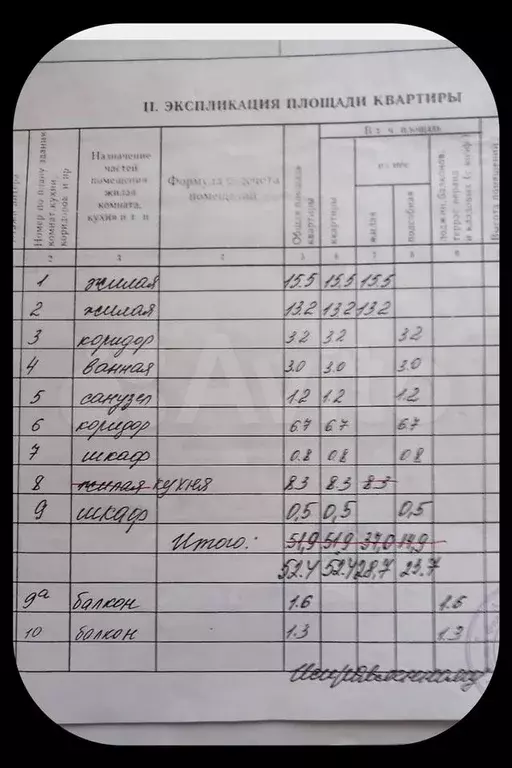 II. ЭКСПЛИКАЦИЯ ПЛОЩАДИ КВАРТИРЫ
Номер по плану здания комнат, кухни, коридоров и пр
Назначение частей помещения жилая комната, кухня и т. п
Формула подсчета помещений
Общая площадь квартиры
В т. ч. площадь
квартиры
из нее
жилая
подсобная
лоджии, балконов, террас, веранд и кладовых (с коэф.)
Высота помещений
1 жилая 15.5 15.5 15.5
2 жилая 13.2 13.2 13.2
3 коридор 3.2 3.2 3.2
4 ванная 3.0 3.0 3.0
5 санузел 1.2 1.2 1.2
6 коридор 6.7 6.7 6.7
7 шкаф 0.8 0.8 0.8
8 жилая кухня 8.3 8.3 8.3
9 шкаф 0,5 0,5 0,5
Итого: 51,9 51,9 37,0 14,9
52.4 52.4 28,7 23.7
9а балкон 1.6 1.6
10 балкон 1.3 1.3
Исправленному
Avito